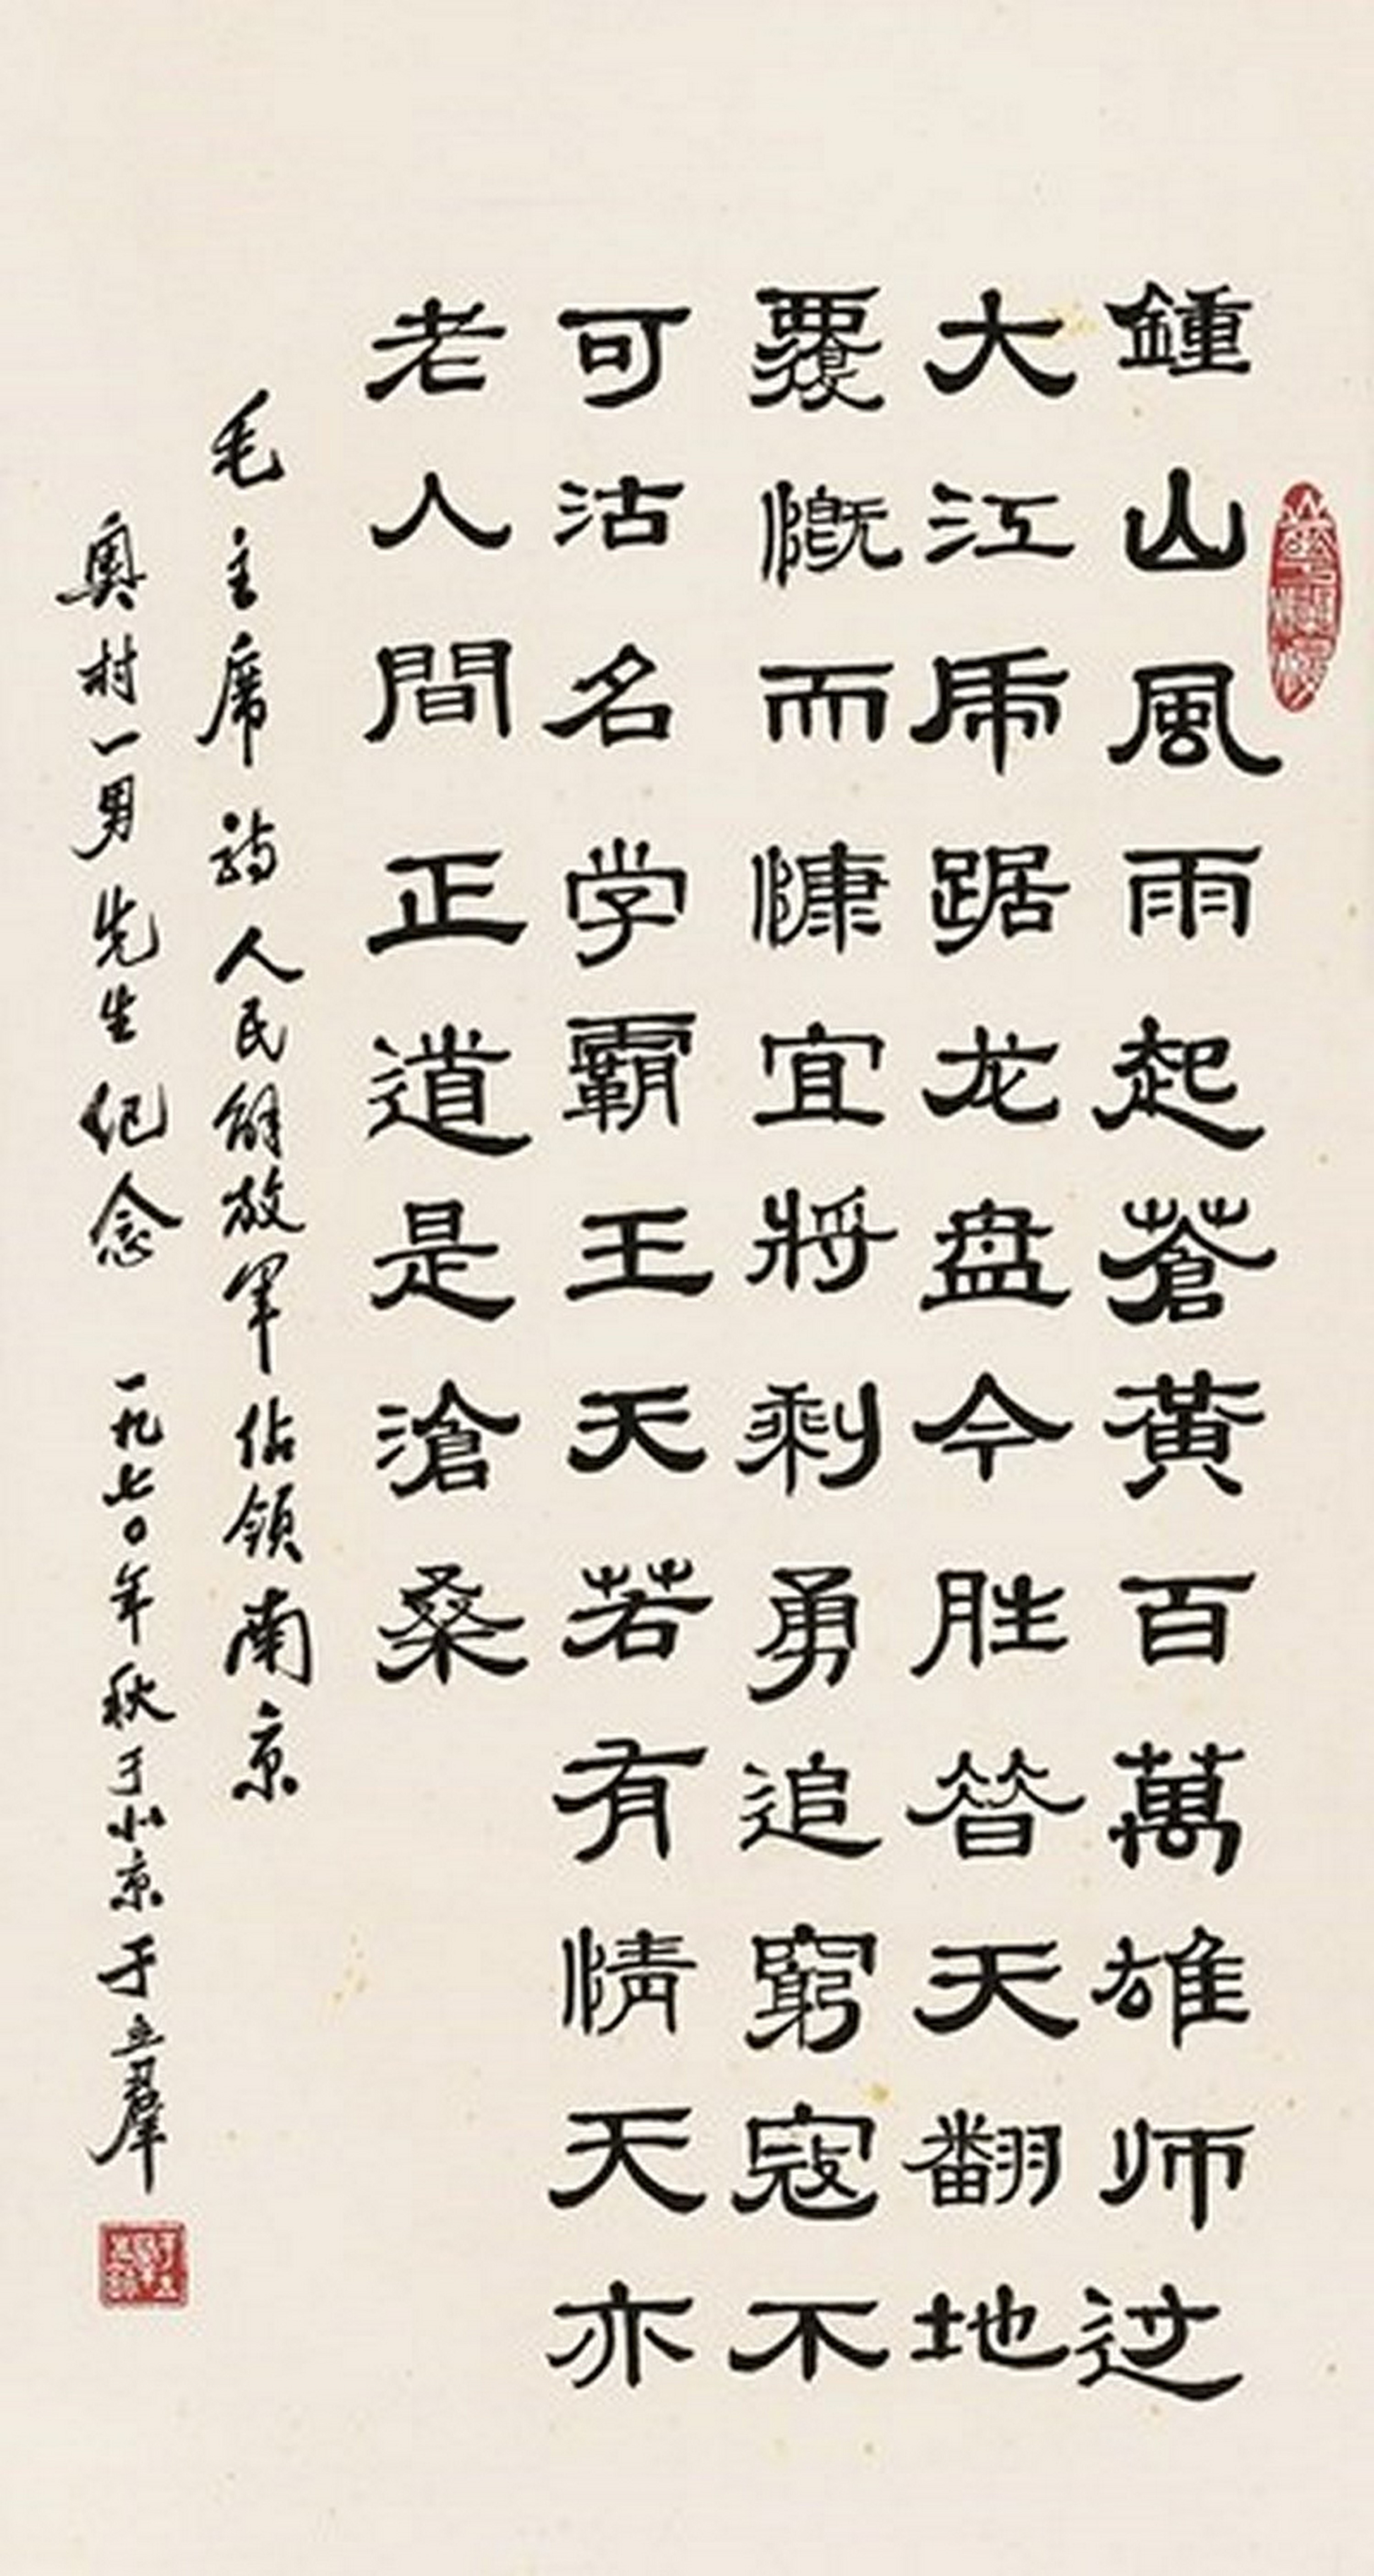 鍾山風雨起蒼黃百萬雄师过
大江虎踞龙盘今胜昔天翻地
覆慨而慷宜將剩勇追窮寇不
可沽名学霸王天若有情天亦
老人間正道是滄桑
毛主席诗人民解放军佔領南京
奥村一男先生纪念 一九七〇年秋于北京于立群